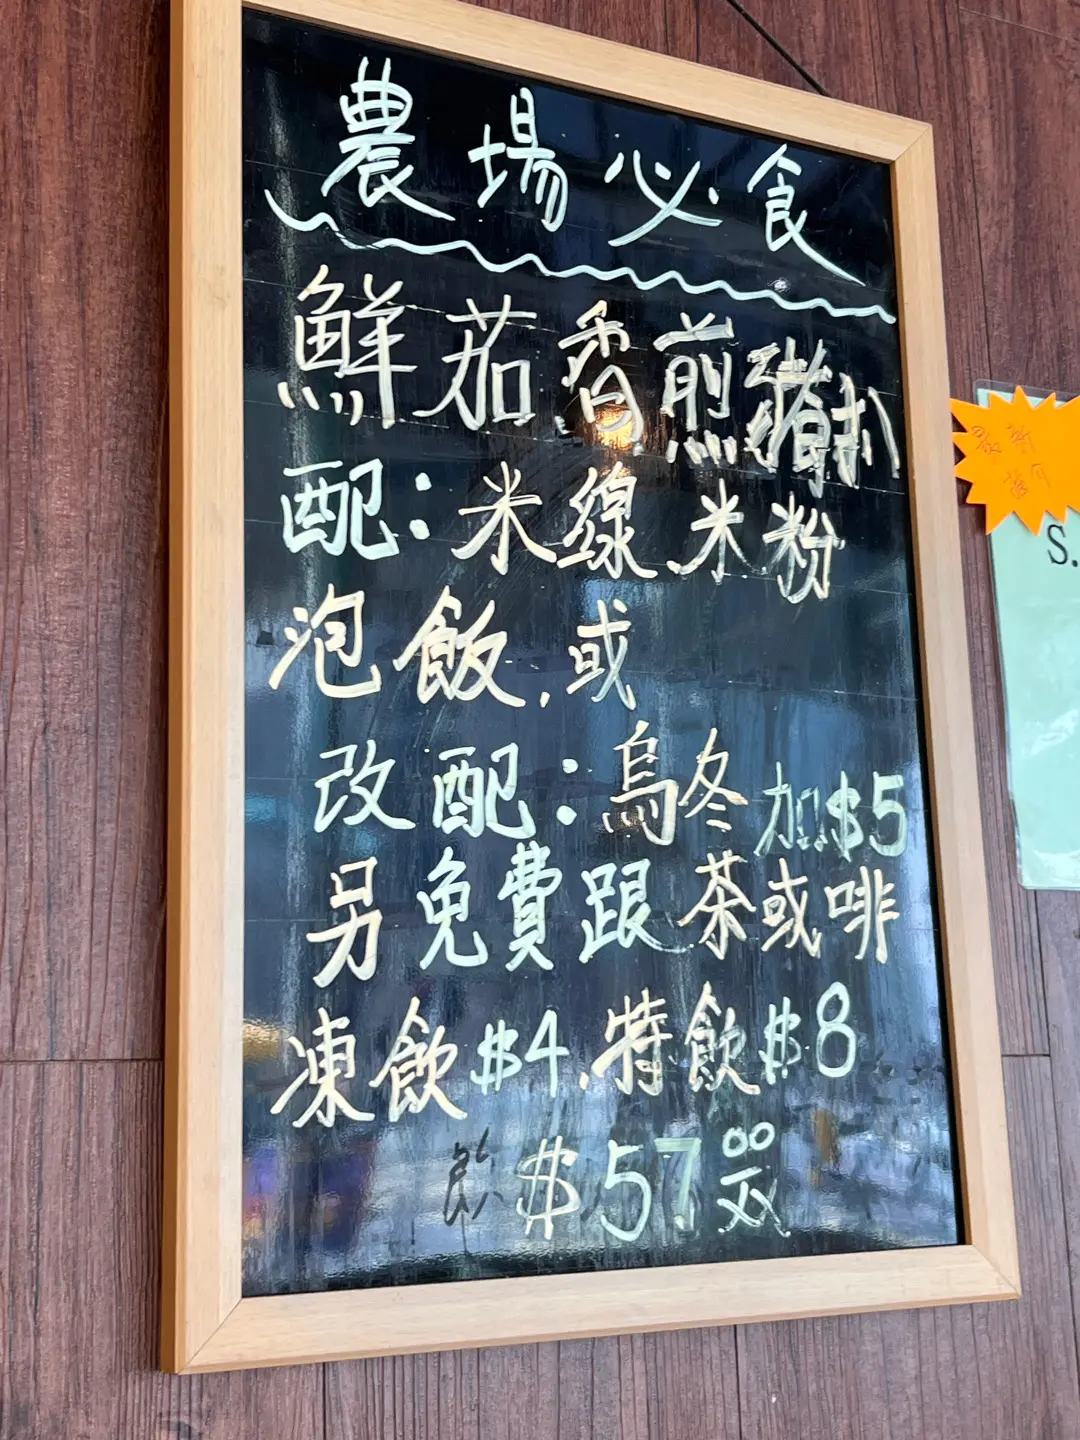 農場必食
鮮茄香煎豬扒
配：米線 米粉
泡飯，或
改配：烏冬 加$5
另免費跟茶或啡
凍飲$4，特飲$8
$57
S.